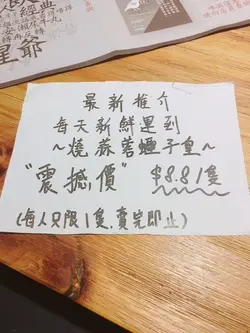 經典
星爺
最新推介
每天新鮮運到
～燒蒜蓉蠔子皇～
“震撼價” $8.81隻
(每人只限1隻，賣完即止)